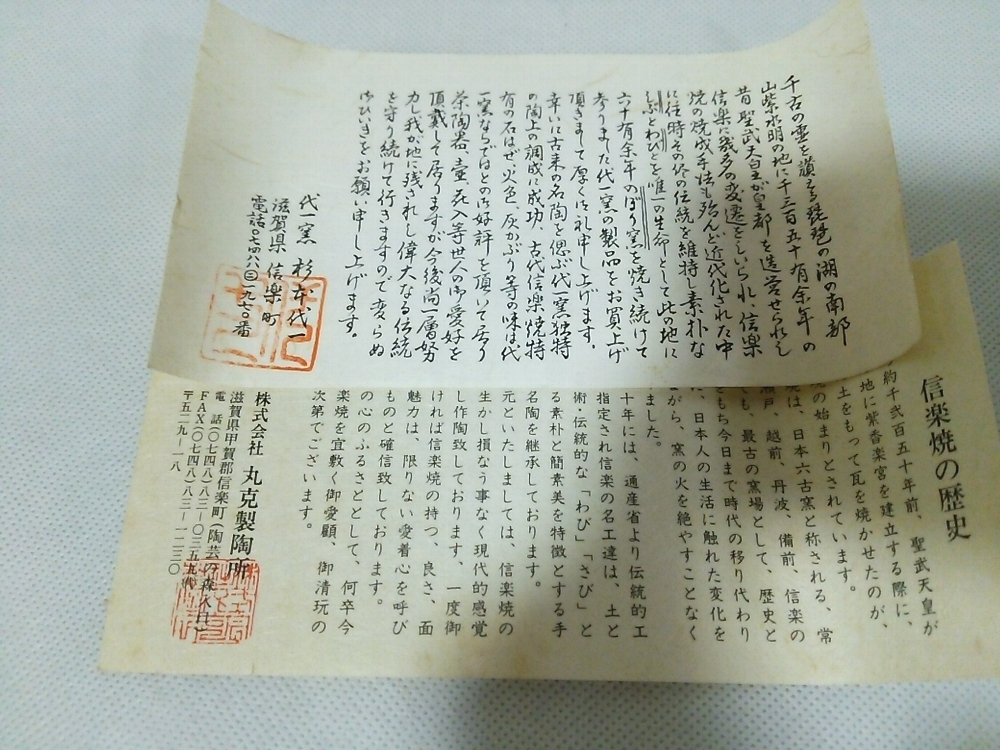 千古の霊を讃える琵琶の湖の南部
山紫水明の地に千三百五十有余年の
昔聖武天皇が皇都を造営せられし
信楽に幾多の変遷をしいられ、信楽
焼の焼成手法も殆んど近代化された中
に往時その侭の伝統を維持し素朴な
しぶとわびとを唯一の生命として此の地に
六十有余年のぼり窯を焼き続けて
参りました代一窯の製品をお買上げ
頂きまして厚く御礼申し上げます。
幸いに古来の名陶を偲ぶ代一窯独特
の陶土の調成に成功、古代信楽焼特
有の石はぜ火色、灰かぶり等の味は代
一窯ならではとの御好評を頂いて居り
茶陶器、壷、花入等世人の御愛好を
頂戴して居りますが今後尚一層努
力し我が地に残されし偉大なる伝統
を守り続けて行きますので変らぬ
御ひいきをお願い申し上げます。
代一窯 杉本代一
滋賀県 信楽町
電話〇七四八八㊁一九七〇番
信楽焼の歴史
約千弐百五十年前、聖武天皇が
地に紫香楽宮を建立する際に、
土をもって瓦を焼かせたのが、
焼の始まりとされています。
焼は、日本六古窯と称される、常
瀬戸、越前、丹波、備前、信楽の
でも、最古の窯場として、歴史と
ともち今日まで時代の移り代わり
に、日本人の生活に触れた変化を
ながら、窯の火を絶やすことなく
ました。
十年には、通産省より伝統的工
指定され信楽の名工達は、土と
術・伝統的な「わび」「さび」と
る素朴と簡素美を特徴とする手
名陶を継承しております。
元といたしましては、信楽焼の
生かし損なう事なく現代的感覚
し作陶致しております、一度御
ければ信楽焼の持つ、良さ、面
魅力は、限りない愛着心を呼び
ものと確信致しております。
の心のふるさととして、何卒今
楽焼を宜敷く御愛顧、御清玩の
次第でございます。
株式会社 丸克製陶所
滋賀県甲賀郡信楽町(陶芸の森入口)
電話(〇七四八)八二-〇三五五代
FAX(〇七四八)八三-一一三〇
〒五二九-一八